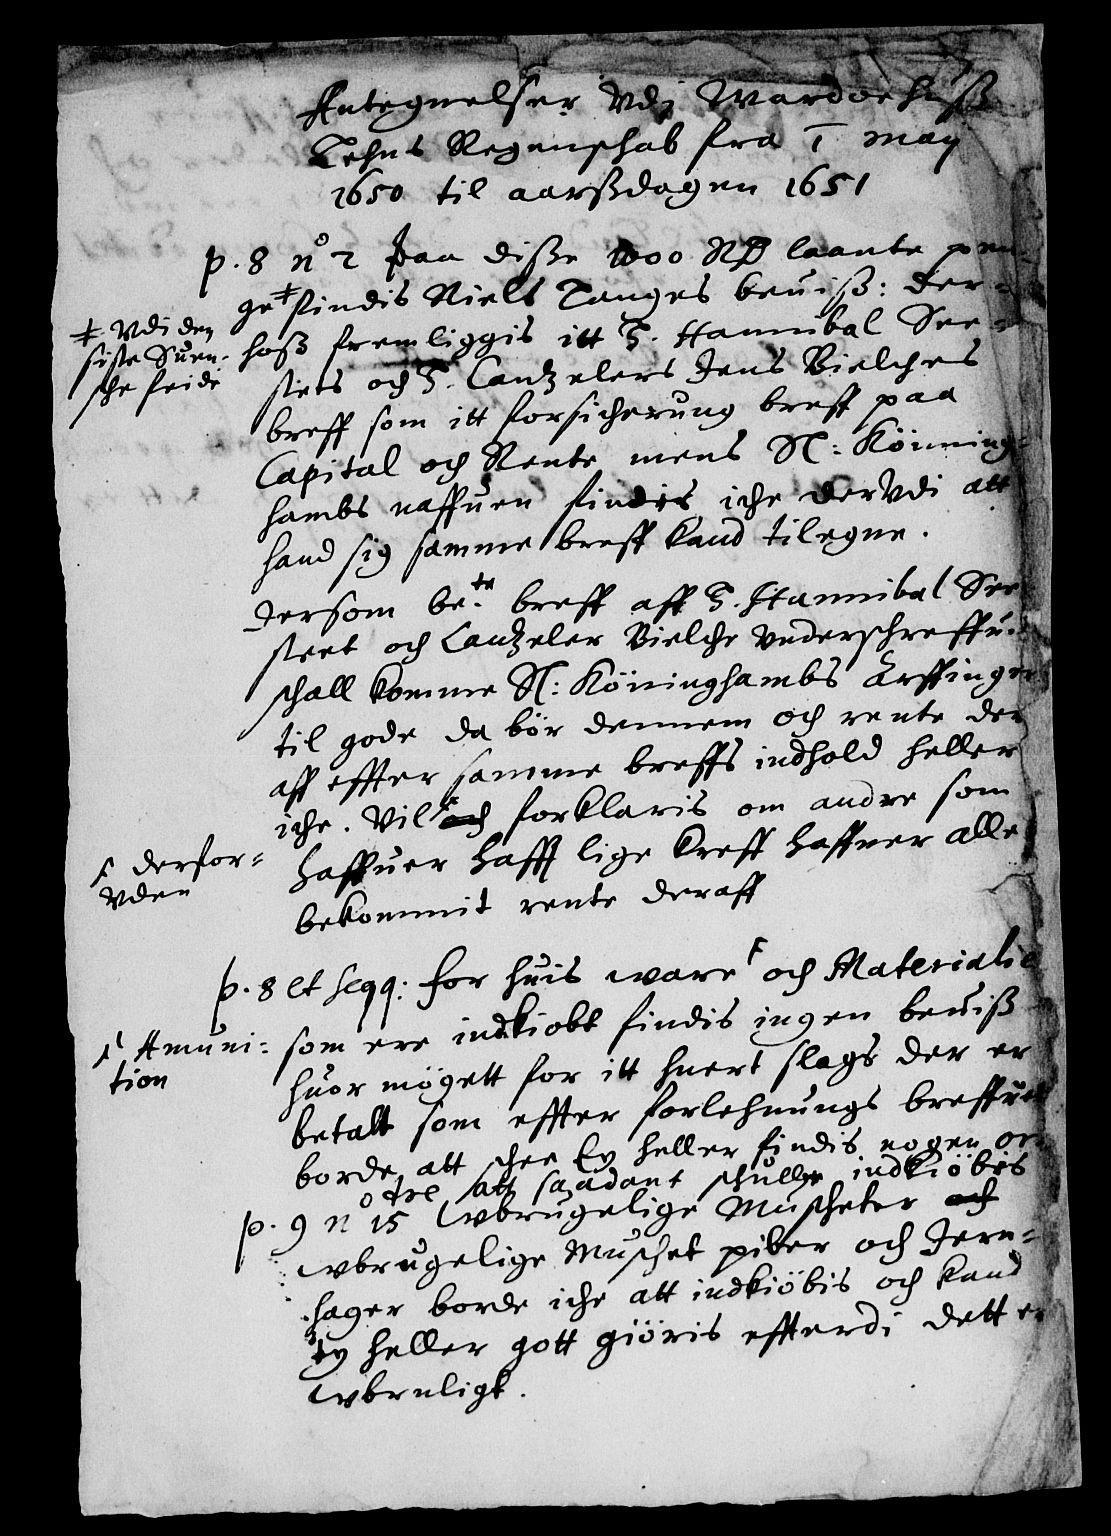 Antegnelser Vdj Wardoehuss
Lehns Regenschab fra 1 may
1650 til aarssdagen 1651
p. 8 no 2 Paa disse 1000 Rd laante pen-
ge ‡ findis Niels Langes beuiss: der-
‡ Vdi den
siste Suen-
sche feide
hoss fremliggis itt H. Hannibal See-
stets och H. Cantzelers Jens Bielches
breff som itt forsicherung breff paa
Capital och Rente mens N: Könning-
hambs naffuen findis iche derVdi att
hand sig samme breff kand tilegne.
Dersom be:te breff aff H. Hannibal See
steet och Cantzeler Bielche vnderschreffu
schall komme N: Köninghambs Arffinger
til gode da bör dennem och rente der
aff effter samme breffs indhold heller
iche. Vil och forklaris om andre som
derfor-
vden
haffuer hafft lige breff haffuer alle
bekommit rente deraff
p. 8 et seqq: for huis ware och Materialie
Amuni-
tion
som ere indkiobt findis ingen beuiss
huor mögett for itt huert slags der er
betalt som effter forlehnungs breffuet
borde att schee Ey heller findis nogen or-
dre att saadant schulle indkiöbis
p. 9 no 15 wbrugelige Muscheter och
wbrugelige Muschet piber och Jern-
hager borde iche att indkiöbis och kand
Ey heller gott giöris effterdi dett er
wbruligt.